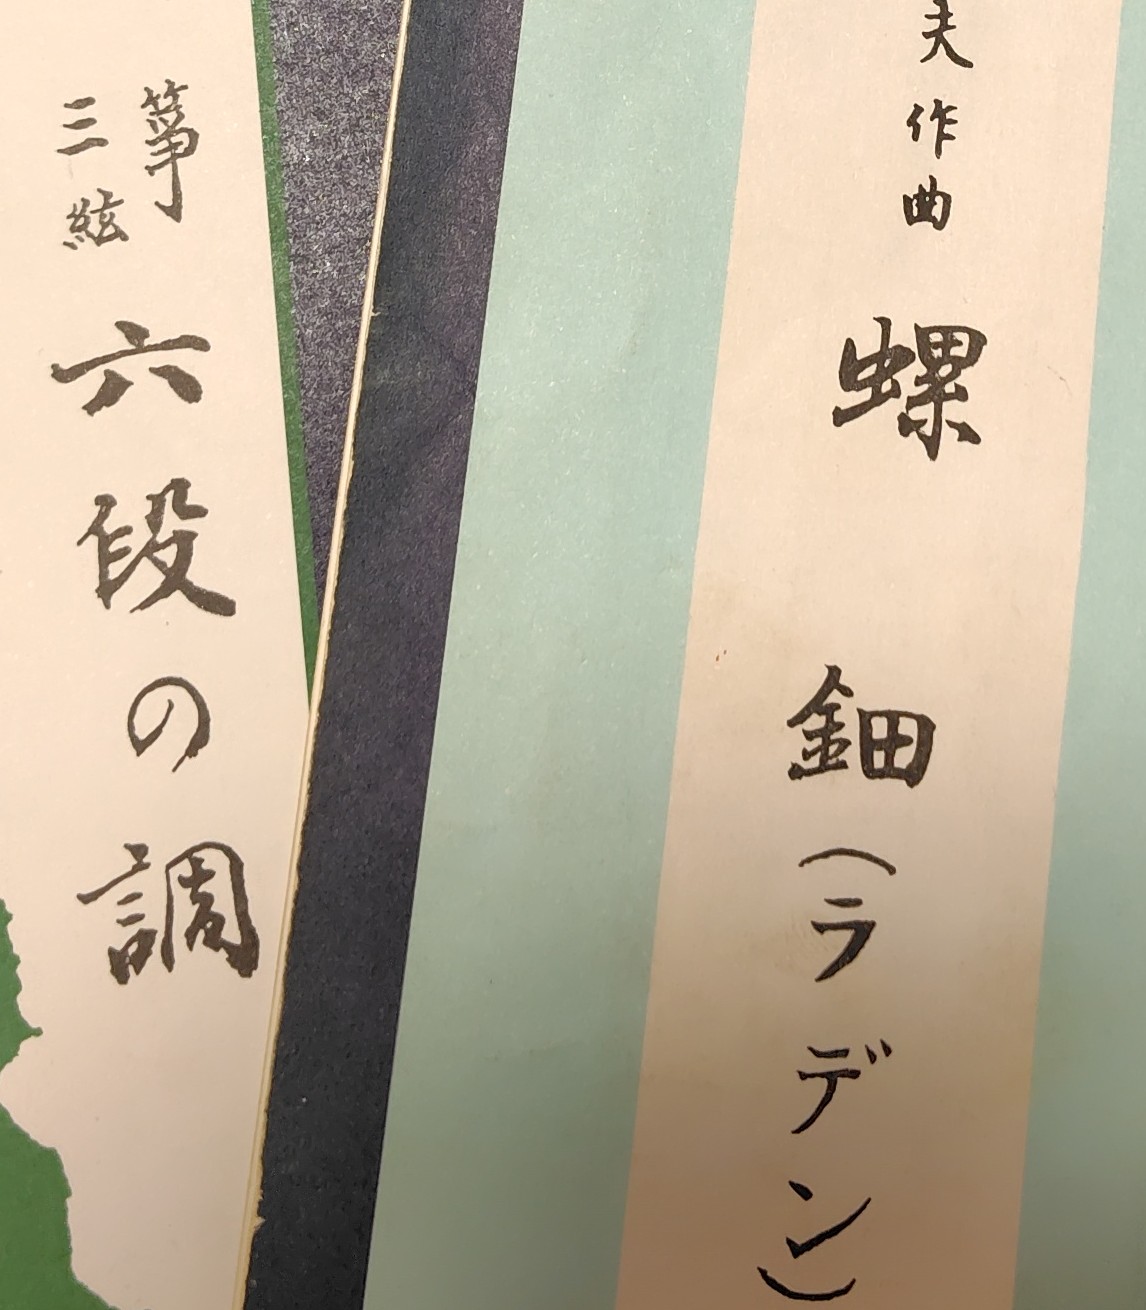 夫作曲
螺鈿(ラデン)
箏
三絃
六段の調